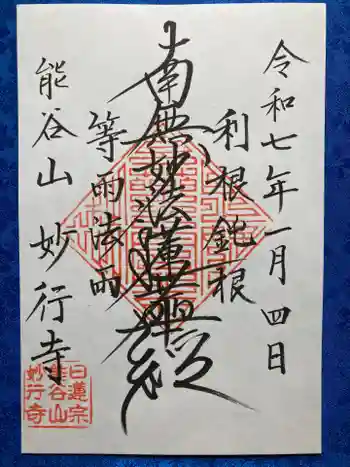 令和七年一月四日
利根鈍根
南無妙法蓮華経
等雨法雨
熊谷山 妙行寺
日蓮宗
熊谷山
妙行寺